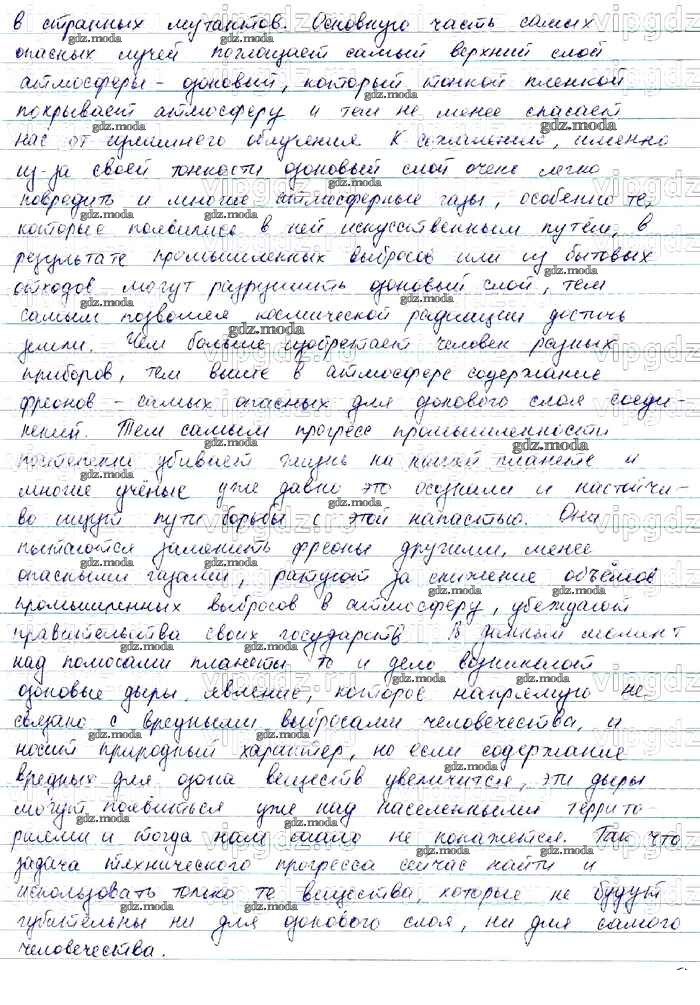 в странных мутантов. Основную часть самых
опасных лучей поглощает самый верхний слой
атмосферы - озоновый, который тонкой пленкой
покрывает атмосферу и тем не менее спасает
нас от излишнего облучения. К сожалению, именно
из-за своей тонкости озоновый слой очень легко
повредить и многие атмосферные газы, особенно те,
которые появились в ней искусственным путём, в
результате промышленных выбросов или из бытовых
отходов могут разрушить озоновый слой, тем
самым позволяя космической радиации достичь
земли. Чем больше изобретает человек разных
приборов, тем выше в атмосфере содержание
фреонов - самых опасных для озонового слоя соеди-
нений. Тем самым прогресс промышленности
постепенно убивает жизнь на нашей планете и
многие учёные уже давно это осознали и настойчи-
во ищут пути борьбы с этой напастью. Они
пытаются заменить фреоны другими, менее
опасными газами, ратуют за снижение объёмов
промышленных выбросов в атмосферу, убеждают
правительства своих государств. В данный момент
над полюсами планеты то и дело возникают
озоновые дыры, явление, которое напрямую не
связано с вредными выбросами человечества, и
носит природный характер, но если содержание
вредных для озона веществ увеличится, эти дыры
могут появиться уже над населенными террито-
риями и тогда нам мало не покажется. Так что
задача технического прогресса сейчас найти и
использовать только те вещества, которые не будут
губительны ни для озонового слоя, ни для самого
человечества.
gdz.moda
vipgdz.ru